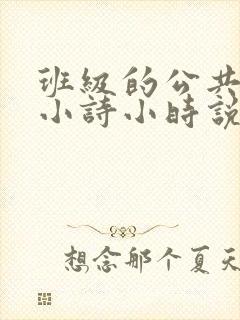 班級的公共
小詩小時說
想念那个夏天